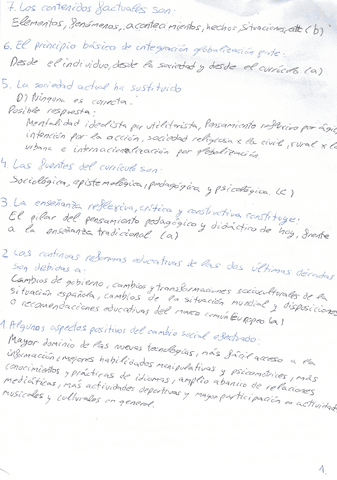 7. Los contenidos factuales son:
Elementos, fenómenos, acontecimientos, hechos, situaciones, etc (b)
6. El principio básico de integración globalización parte:
Desde el individuo, desde la sociedad y desde el currículo (a)
5. La sociedad actual ha sustituido
D) Ninguna es correcta.
Posible respuesta:
Mentalidad idealista por utilitarista, Pensamiento reflexivo por
intención por la acción, sociedad religiosa x la civil, rural x la
urbana e internacionalización por globalización
4. Las fuentes del currículo son:
Sociológica, epistemológica, pedagógica y psicológica. (c)
3. La enseñanza reflexiva, crítica y constructiva constituye:
El pilar del pensamiento pedagógico y didáctico de hoy, frente
a la enseñanza tradicional (a)
2 Las continuas reformas educativas de las dos últimas décadas
son debidas a:
Cambios de gobierno, cambios y transformaciones socioculturales de la
situación española, cambios de la situación mundial y disposiciones
o recomendaciones educativas del marco común europeo (a)
1. Algunos aspectos positivos del cambio social
Mayor dominio de las nuevas tecnologías, más fácil acceso a la
información, mejores habilidades manipulativas y psicomotrices, más
conocimientos y prácticas de idiomas, amplio abanico de relaciones
mediáticas, más actividades deportivas y mayor participación en actividades
musicales y culturales en general.
1.